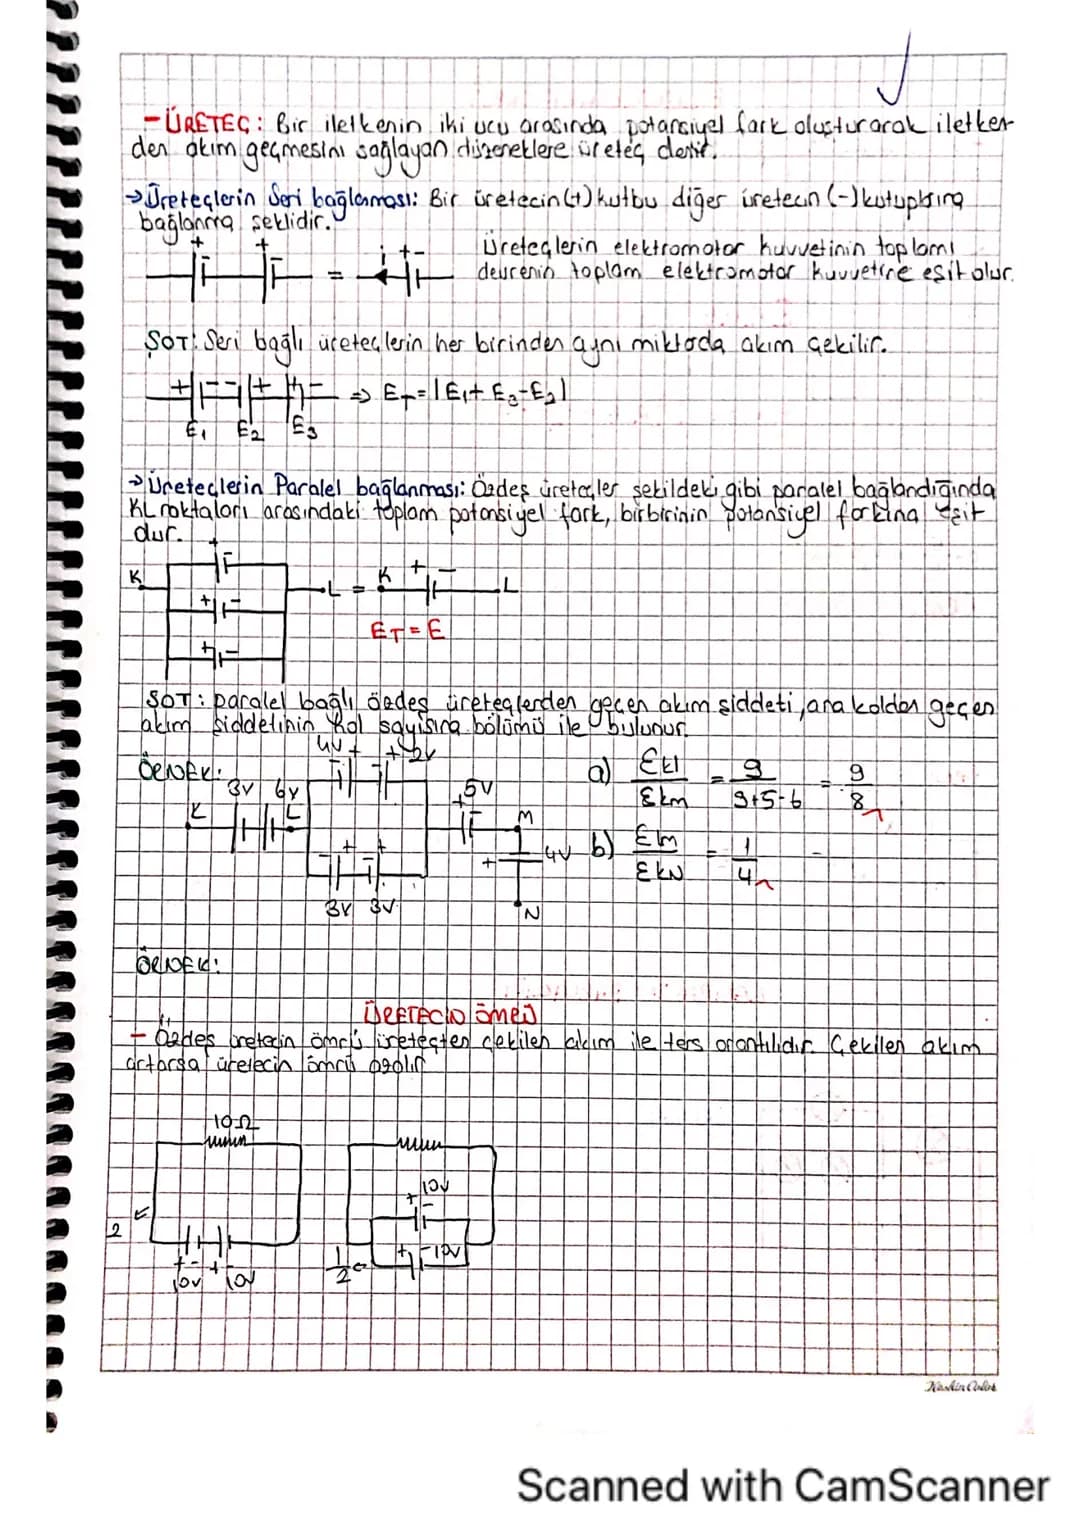 -ÜRETEÇ: Bir iletkenin iki ucu arasında potansiyel fark oluşturarak iletken
den akım geçmesini sağlayan düzeneklere üreteç denir.
→Üreteçlerin Seri bağlanması: Bir üretecin (+) kutbu diğer üretecin (-) kutupbına
bağlanma şeklidir.
+ + = i + -
Üreteçlerin elektromotor kuvvetinin toplamı
devrenin toplam elektromotor kuvvetine eşit olur.
ŞOT: Seri bağlı üreteçlerin her birinden aynı miktada akım çekilir.
+ - - + + - ⇒ ET=|E1+E3-E2|
E1 E2 E3
→Üreteçlerin Paralel bağlanması: Özdeş üreteçler şekildeki gibi paralel bağlandığında
KL noktaları arasındaki toplam potansiyel fark, birbirinin potansiyel farkına eşit
dur.
K + + - + - L = K + - L
ET=E
ŞOT: paralel bağlı özdeş üreteçlerden geçen akım şiddeti, ana koldan geçen
akım şiddetinin kol sayısına bölümü ile bulunur.
ÖRNEK:
4V + + 2V
3V 6V
K L
5V
+ M
+ 4V
+ +
3V 3V N
a) Ekl/Ekm = 9/9+5-6 = 9/8
b) Elm/EkN = 1/4 -
ÖRNEK:
ÜRETECİN ÖMRÜ
- Özdeş üretecin ömrü üreteçten çekilen akım ile ters orantılıdır. Çekilen akım
artarsa üretecin ömrü azalır
10Ω
2
+ - + -
10V 10V
10V
+ -
+ - 10V
1/2
Keskin Color
Scanned with CamScanner